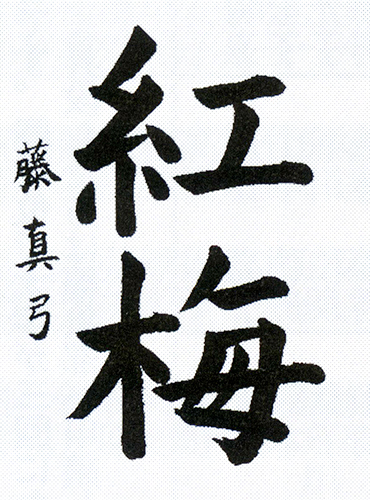 紅梅
藤真弓